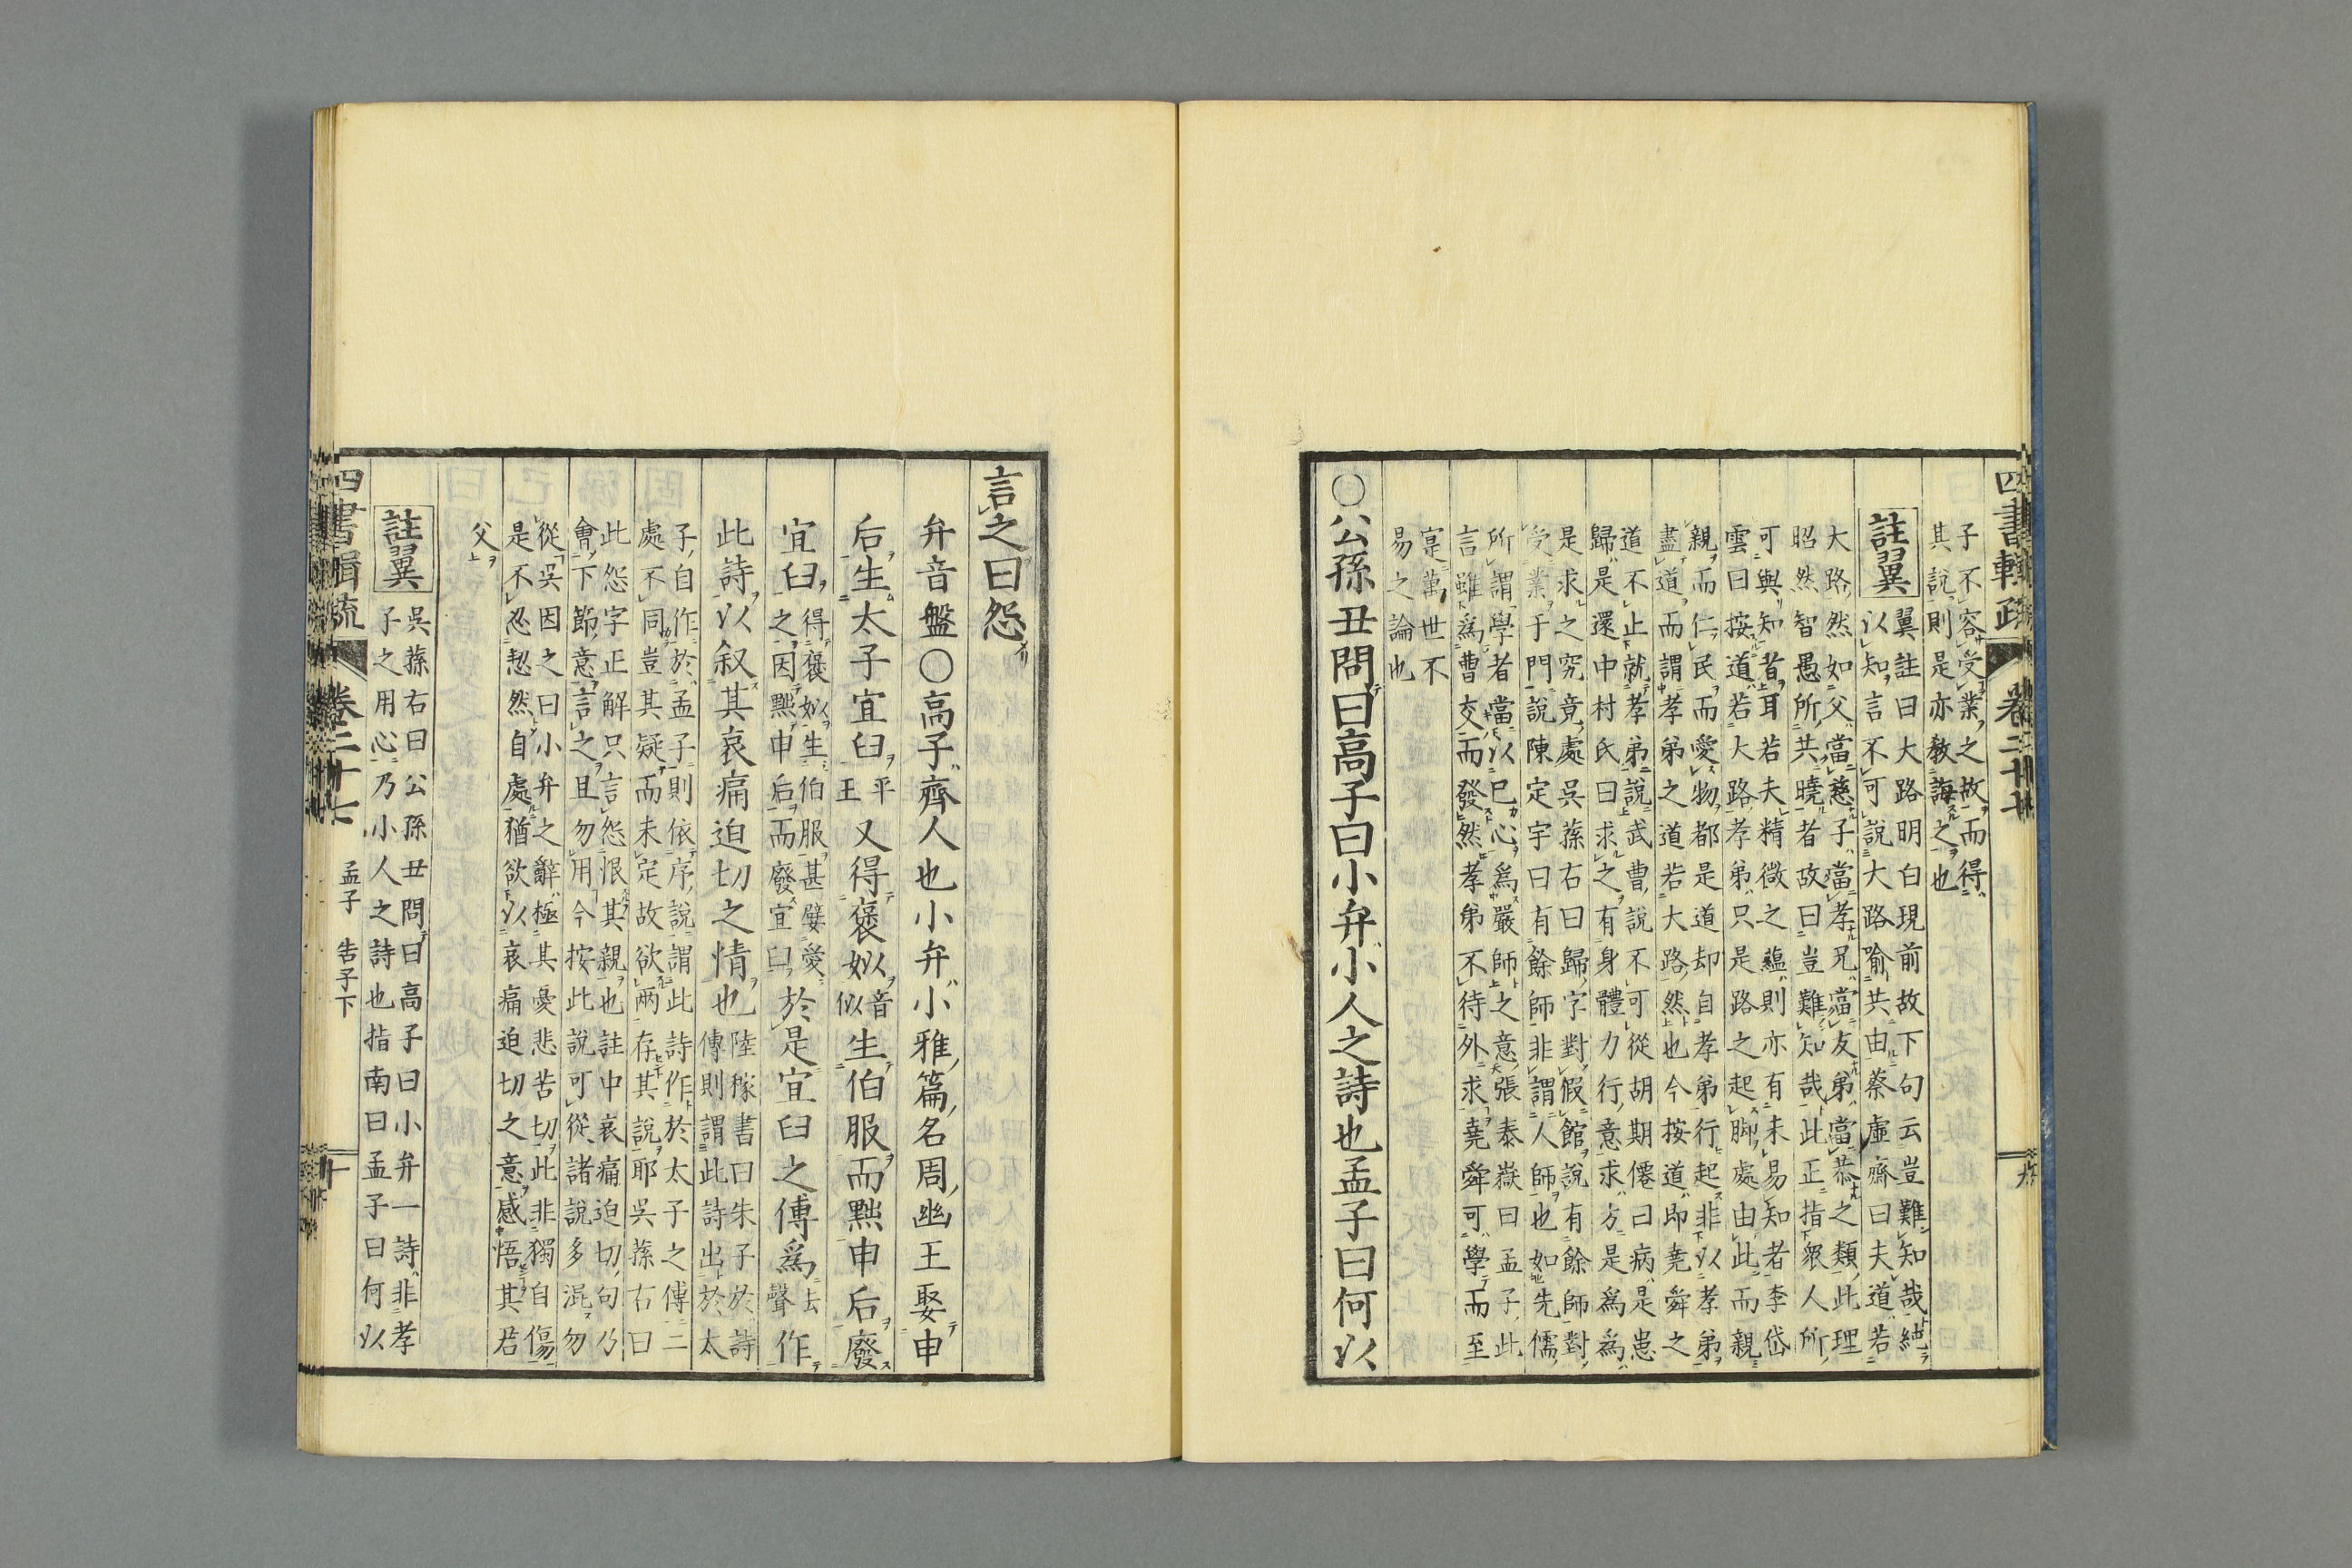 四書輯疏
卷二十七
九
子不容受業之故而得
其說則是亦敎誨之也
註翼
翼註曰大路明白現前故下句云豈難知哉紬
以知言不可說大路喻共由蔡虛齋曰夫道若
大路然如父當慈子當孝兄當友弟當恭之類此理
昭然智愚所共曉者故曰豈難知哉此正指眾人所
可與知者耳若夫精微之蘊則亦有未易知者李岱
雲曰按道若大路孝弟只是路之起脚處由此而親
親而仁民而愛物都是道却自孝弟行起非以孝弟
盡道而謂孝弟之道若大路然也今按道即堯舜之
道不止就孝弟說武曹說不可從胡期僊曰病是患
歸是還中村氏曰求之有身體力行意求方是爲爲
是求之究竟處吳蓀右曰歸字對假館說有餘師對
受業于門說陳定宇曰有餘師非謂人師也如先儒
所謂學者當以己心爲嚴師之意張泰嶽曰孟子此
言雖爲曹交而發然孝弟不待外求堯舜可學而至
寔萬世不
易之論也
○公孫丑問曰高子曰小弁小人之詩也孟子曰何以
言之曰怨
弁音盤○高子齊人也小弁小雅篇名周幽王娶申
后生太子宜臼平王又得褒姒音似生伯服而黜申后廢
宜臼得褒姒生伯服甚嬖愛
之因黜申后而廢宜臼於是宜臼之傅爲去聲作
此詩以叙其哀痛迫切之情也陸稼書曰朱子於詩
傳則謂此詩出於太
子自作於孟子則依序說謂此詩作於太子之傅二
處不同豈其疑而未定故欲兩存其說耶吳蓀右曰
此怨字正解只言怨恨其親也註中哀痛迫切句乃
會下節意言之且勿用今按此說可從諸說多混勿
從吳因之曰小弁之辭極其憂悲苦切此非獨自傷
是不忍恝然自處猶欲以哀痛迫切之意感悟其君
父
註翼
吳蓀右曰公孫丑問曰高子曰小弁一詩非孝
子之用心乃小人之詩也指南曰孟子曰何以
四書輯疏
卷二十七
孟子 告子下
十